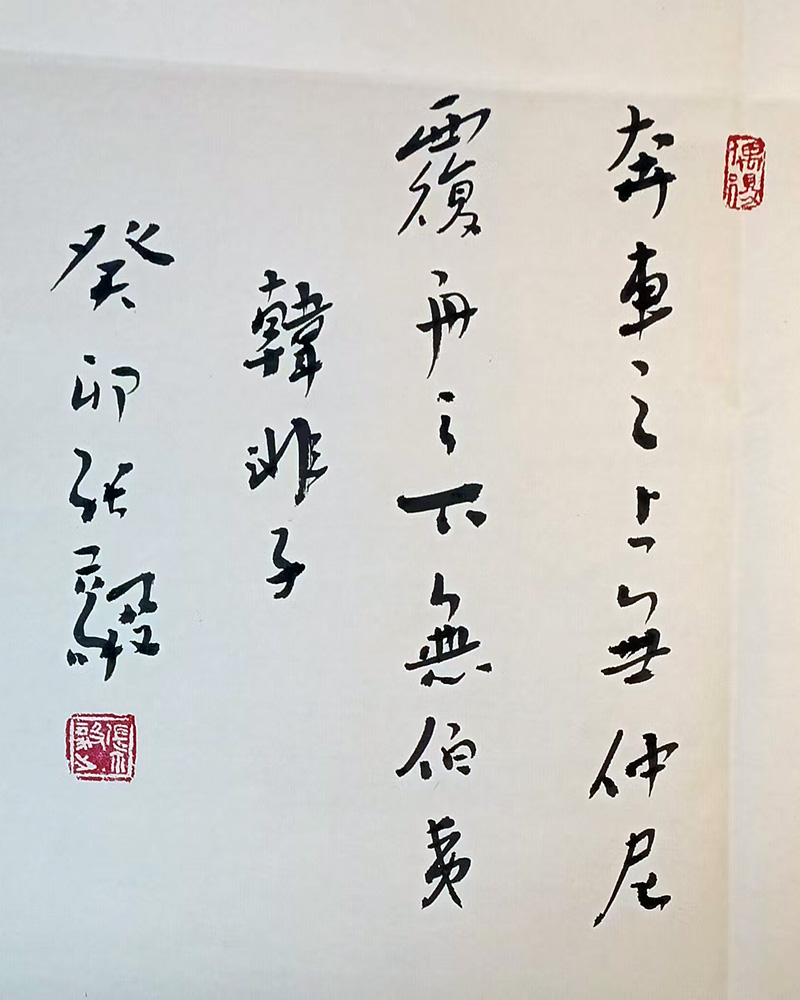 奔車之上無仲尼
覆舟之下無伯夷
韓非子
癸卯張毅
偶得